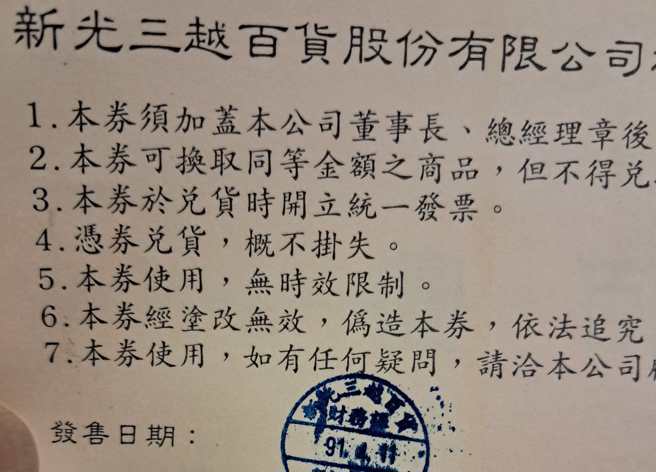 新光三越百貨股份有限公司
1.本券須加蓋本公司董事長、總經理章後
2.本券可換取同等金額之商品，但不得兌
3.本券於兌貨時開立統一發票。
4.憑券兌貨，概不掛失。
5.本券使用，無時效限制。
6.本券經塗改無效，偽造本券，依法追究
7.本券使用，如有任何疑問，請洽本公司
發售日期：
光三越百貨
財務課
91.4.11